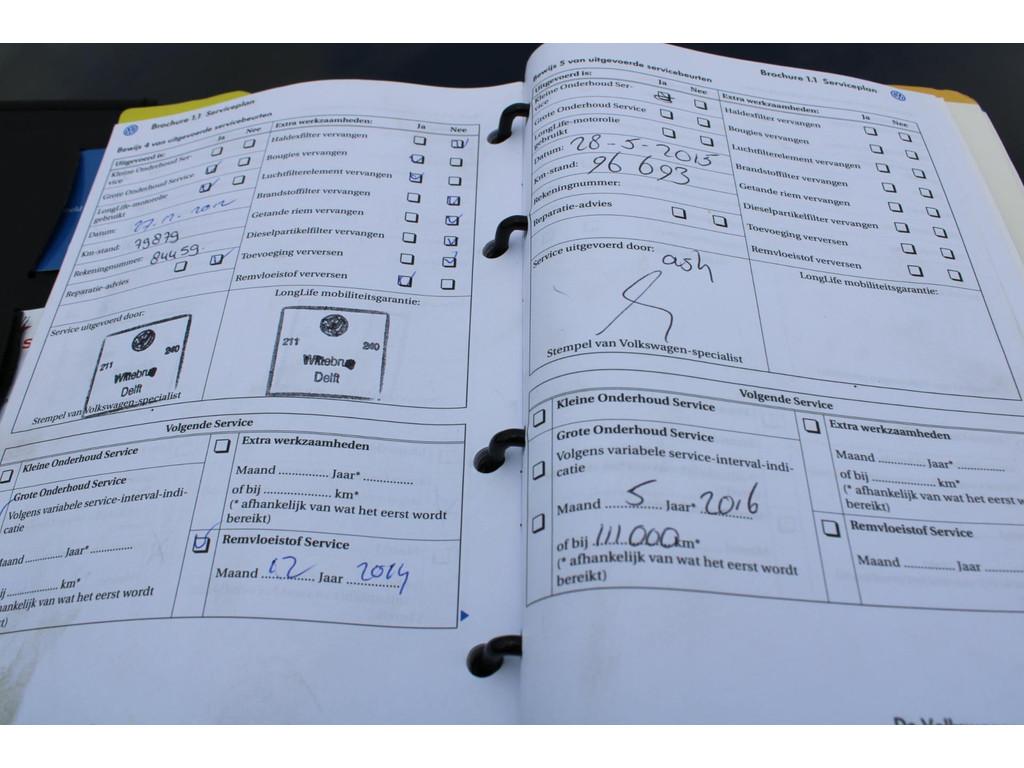 Brochure 1.1 Serviceplan
Bewijs 4 van uitgevoerde servicebeurten
Uitgevoerd is: Ja Nee
Kleine Onderhoud Ser-
vice
Grote Onderhoud Service
LongLife-motorolie
gebruikt
Datum: 27-12-2012
Km-stand: 79879
Rekeningnummer: 84459
Reparatie-advies
Extra werkzaamheden: Ja Nee
Haldexfilter vervangen
Bougies vervangen
Luchtfilterelement vervangen
Brandstoffilter vervangen
Getande riem vervangen
Dieselpartikelfilter vervangen
Toevoeging verversen
Remvloeistof verversen
Service uitgevoerd door:
211 240
Wittebrug
Delft
Stempel van Volkswagen-specialist
LongLife mobiliteitsgarantie:
211 240
Wittebrug
Delft
Volgende Service
Kleine Onderhoud Service
Grote Onderhoud Service
Volgens variabele service-interval-indi-
catie
Maand .............. Jaar*..............
km*
hankelijk van wat het eerst wordt
Extra werkzaamheden
Maand .............. Jaar*
of bij .................... km*
(* afhankelijk van wat het eerst wordt
bereikt)
Remvloeistof Service
Maand 12 Jaar 2014
Brochure 1.1 Serviceplan
Bewijs 5 van uitgevoerde servicebeurten
Uitgevoerd is: Ja Nee
Kleine Onderhoud Ser-
vice
Grote Onderhoud Service
LongLife-motorolie
gebruikt
Datum: 28-5-2015
Km-stand: 96 693
Rekeningnummer:
Reparatie-advies
Extra werkzaamheden: Ja Nee
Haldexfilter vervangen
Bougies vervangen
Luchtfilterelement vervangen
Brandstoffilter vervangen
Getande riem vervangen
Dieselpartikelfilter vervangen
Toevoeging verversen
Remvloeistof verversen
Service uitgevoerd door: ash
Stempel van Volkswagen-specialist
LongLife mobiliteitsgarantie:
Volgende Service
Kleine Onderhoud Service
Grote Onderhoud Service
Volgens variabele service-interval-indi-
catie
Maand 5 Jaar* 2016
of bij 111.000 km*
(* afhankelijk van wat het eerst wordt
bereikt)
Extra werkzaamheden
Maand .............. Jaar* ..............
of bij .................... km*
(* afhankelijk van wat het eerst w
bereikt)
Remvloeistof Service
Maand .............. Jaar